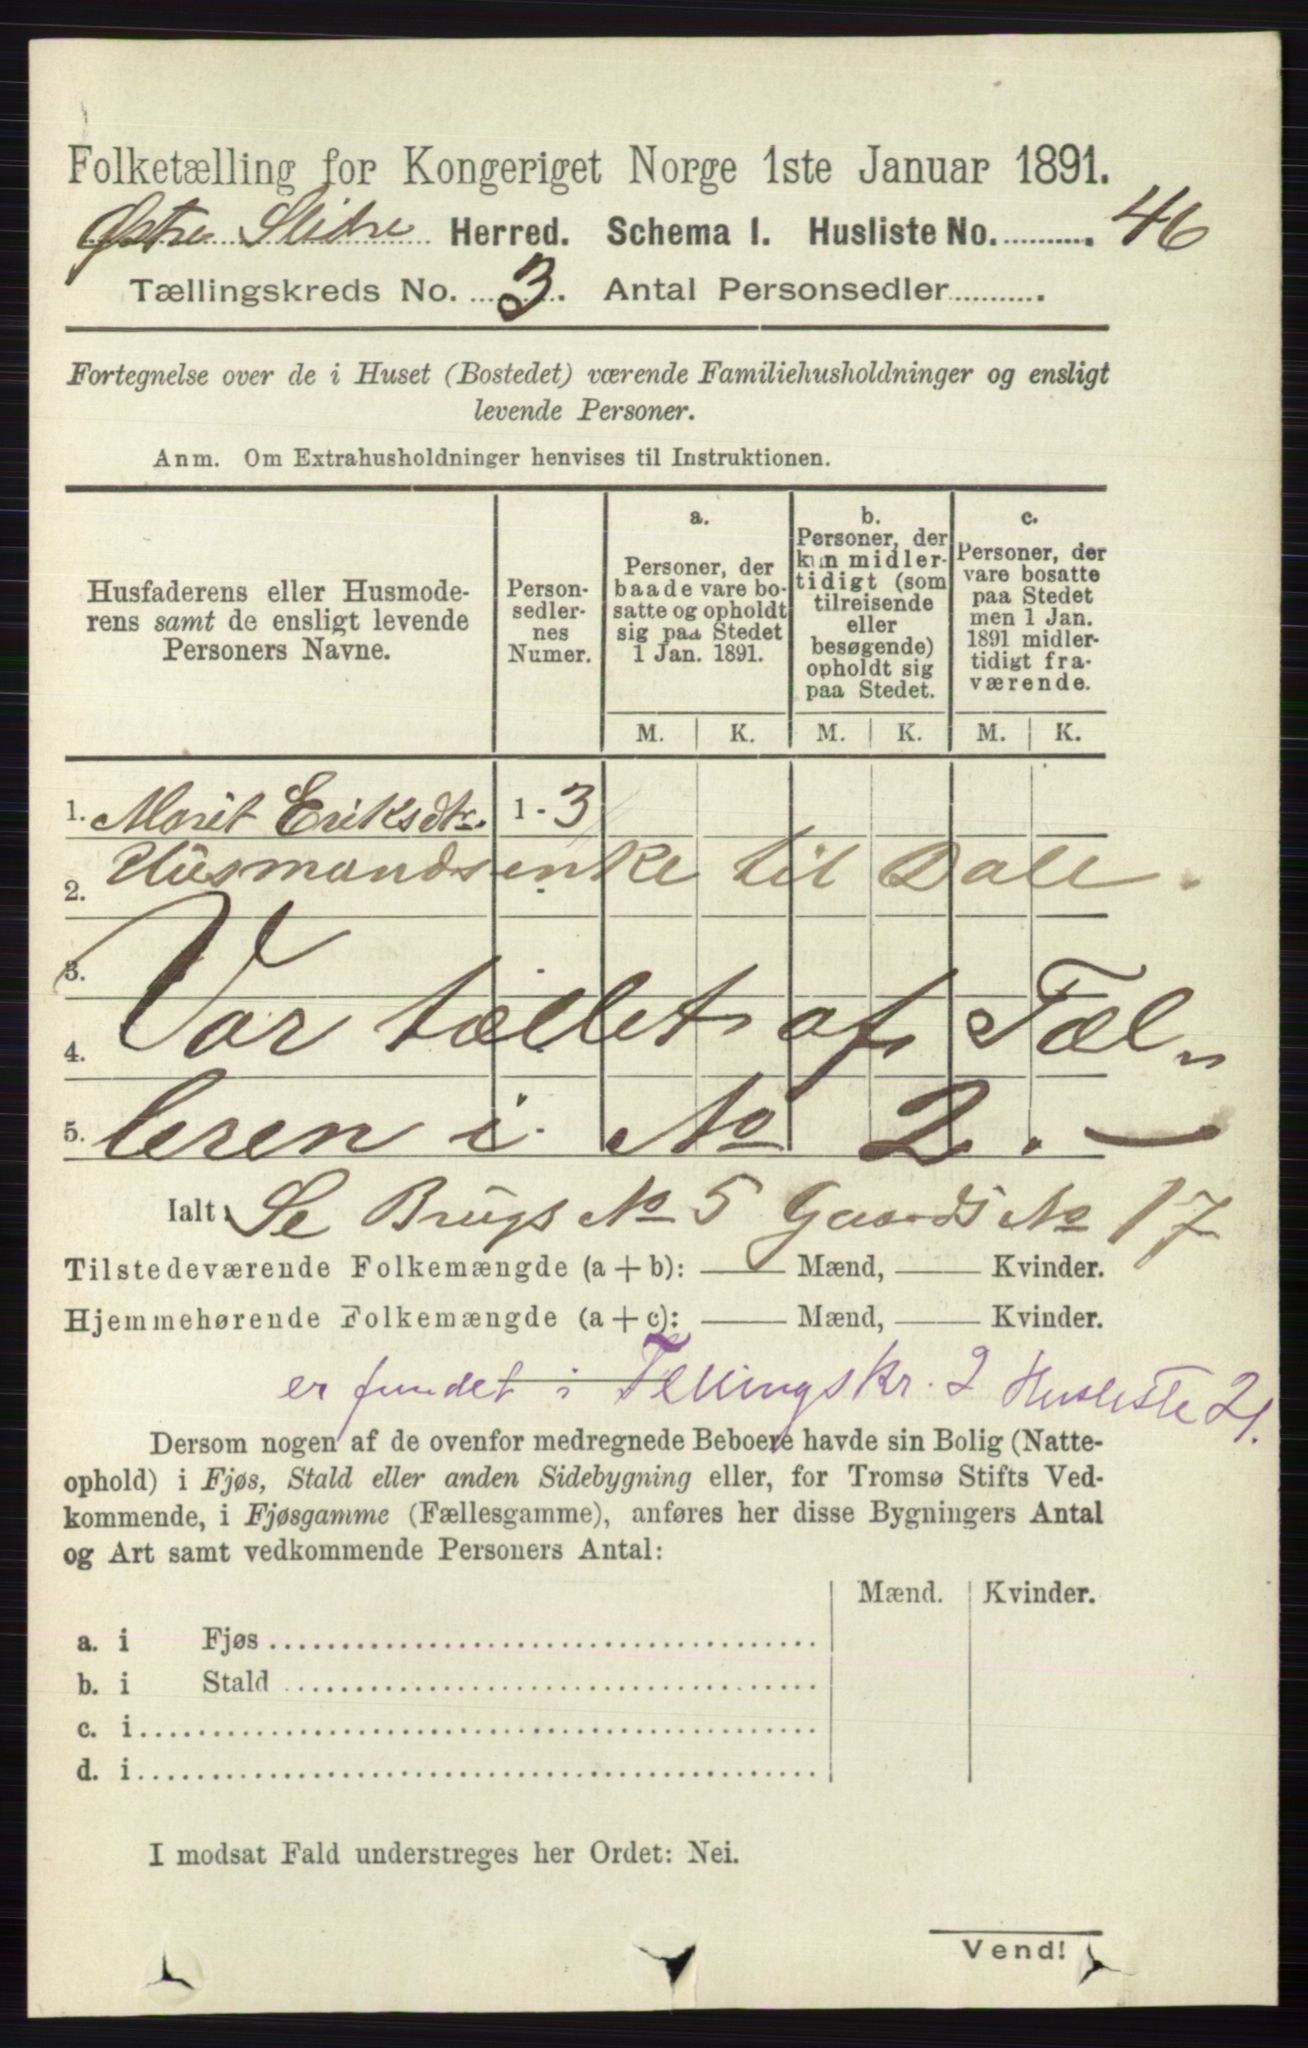 Folketælling for Kongeriget Norge 1ste Januar 1891.
Østre Slidre Herred. Schema I. Husliste No. 46
Tællingskreds No. 3. Antal Personsedler
Fortegnelse over de i Huset (Bostedet) værende Familiehusholdninger og ensligt
levende Personer.
Anm. Om Extrahusholdninger henvises til Instruktionen.
Husfaderens eller Husmode-
rens samt de ensligt levende
Personers Navne.
Person-
sedler-
nes
Numer.
a.
Personer, der
baade vare bo-
satte og opholdt
sig paa Stedet
1 Jan. 1891.
b.
Personer, der
kun midler-
tidigt (som
tilreisende
eller
besøgende)
opholdt sig
paa Stedet.
c.
Personer, der
vare bosatte
paa Stedet
men 1 Jan.
1891 midler-
tidigt fra-
værende.
M. K. M. K. M. K.
1. Marit Eriksdtr. 1 - 3
2. Husmandsenke til Dale.
3.
4. Var tællet af Tæl-
5. leren i No 2.
Ialt: Se Brugs No 5 Gaards No 17
Tilstedeværende Folkemængde (a + b): Mænd, Kvinder.
Hjemmehørende Folkemængde (a + c): Mænd, Kvinder.
er fundet i Tellingskr. 2 Husliste 21.
Dersom nogen af de ovenfor medregnede Beboere havde sin Bolig (Natte-
ophold) i Fjøs, Stald eller anden Sidebygning eller, for Tromsø Stifts Ved-
kommende, i Fjøsgamme (Fællesgamme), anføres her disse Bygningers Antal
og Art samt vedkommende Personers Antal:
Mænd. Kvinder.
a. i Fjøs
b. i Stald
c. i
d. i
I modsat Fald understreges her Ordet: Nei.
Vend!